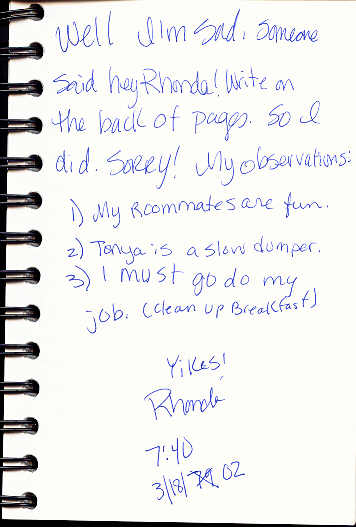 Well I'm sad. Someone
said hey Rhonda! Write on
the back of pages. So I
did. Sorry! My observations:
1) My Roommates are fun.
2) Tonya is a slow dumper.
3) I must go do my
job. (clean up Breakfast)
Yikes!
Rhonda
7:40
3/18/ 02